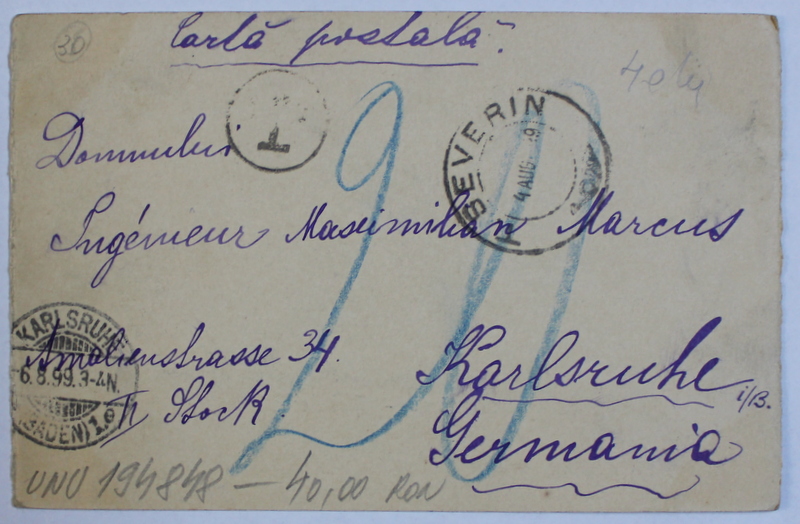 Cartă postală.
36
40 lei
T
T. SEVERIN
4 AUG 99
Domnului
Ingénieur Maximilian Marcus
20
KARLSRUHE
6.8.99.3-4N.
(BADEN) 1.
Amalienstrasse 34.
II Stock
Karlsruhe i/B.
Germania
UNU 194848 - 40,00 RON